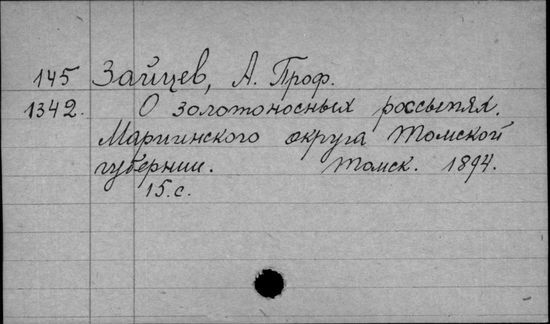 145 Зайцев, А. Проф.
1342. О золотоносных россыпях.
Мариинского округа Томской
губернии. Томск. 1894.
15. с.